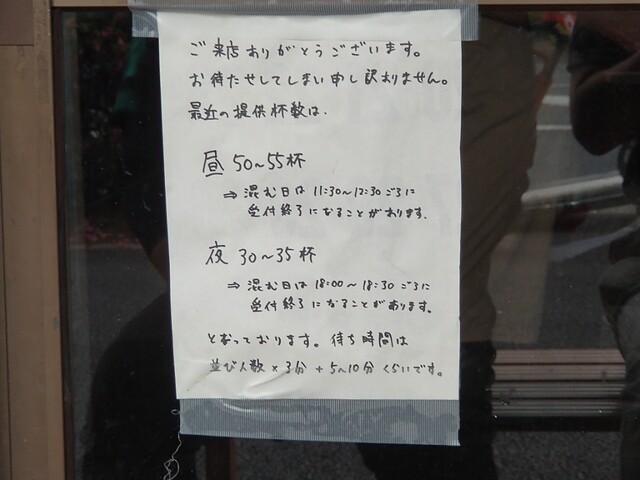 ご来店ありがとうございます。
お待たせしてしまい申し訳ありません。
最近の提供杯数は、
昼 50~55杯
⇒ 混む日は 11:30~12:30ごろに
受付終了になることがあります。
夜 30~35杯
⇒ 混む日は 18:00~18:30ごろに
受付終了になることがあります。
となっております。待ち時間は
並び人数×3分+5~10分くらいです。